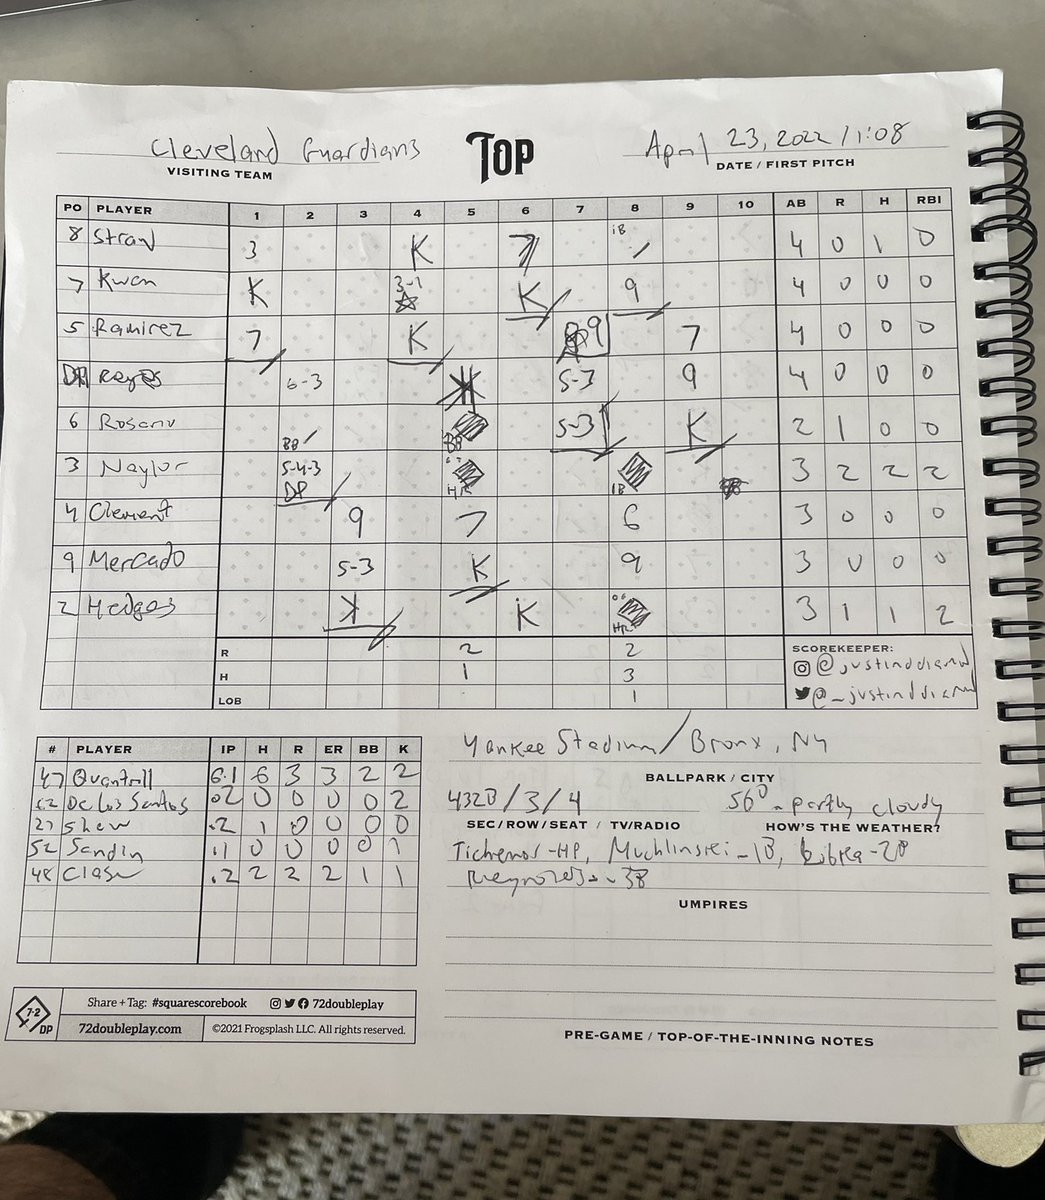 Cleveland Guardians TOP April 23, 2022 / 1:08
VISITING TEAM DATE / FIRST PITCH
PO PLAYER 1 2 3 4 5 6 7 8 9 10 AB R H RBI
8 Straw 3 K 7 1B 4 0 1 0
7 Kwan K 3-1 K 9 4 0 0 0
5 Ramirez 7 K 9 7 4 0 0 0
DH Reyes 6-3 K 5-3 9 4 0 0 0
6 Rosario BB BB 5-3 K 2 1 0 0
3 Naylor 5-4-3 DP HR 1B 3 2 2 2
4 Clement 9 7 6 3 0 0 0
9 Mercado 5-3 K 9 3 0 0 0
2 Hedges K K HR 3 1 1 2
R 2 2
H 1 3
LOB 1
SCOREKEEPER:
@justinddiamd
@_justinddiamd
# PLAYER IP H R ER BB K
47 Quantrill 6.1 6 3 3 2 2
62 De Los Santos .02 0 0 0 0 2
27 Shaw .2 1 0 0 0 0
52 Sandlin .1 0 0 0 0 1
48 Clase .2 2 2 2 1 1
Yankee Stadium / Bronx, NY
BALLPARK / CITY
432B / 3 / 4 56° - partly cloudy
SEC/ROW/SEAT / TV/RADIO HOW'S THE WEATHER?
-HP, Muchlinski-1B, Libka-2B
Reynolds - 3B
UMPIRES
PRE-GAME / TOP-OF-THE-INNING NOTES
7-2 DP
Share + Tag: #squarescorebook 72doubleplay
72doubleplay.com ©2021 Frogsplash LLC. All rights reserved.